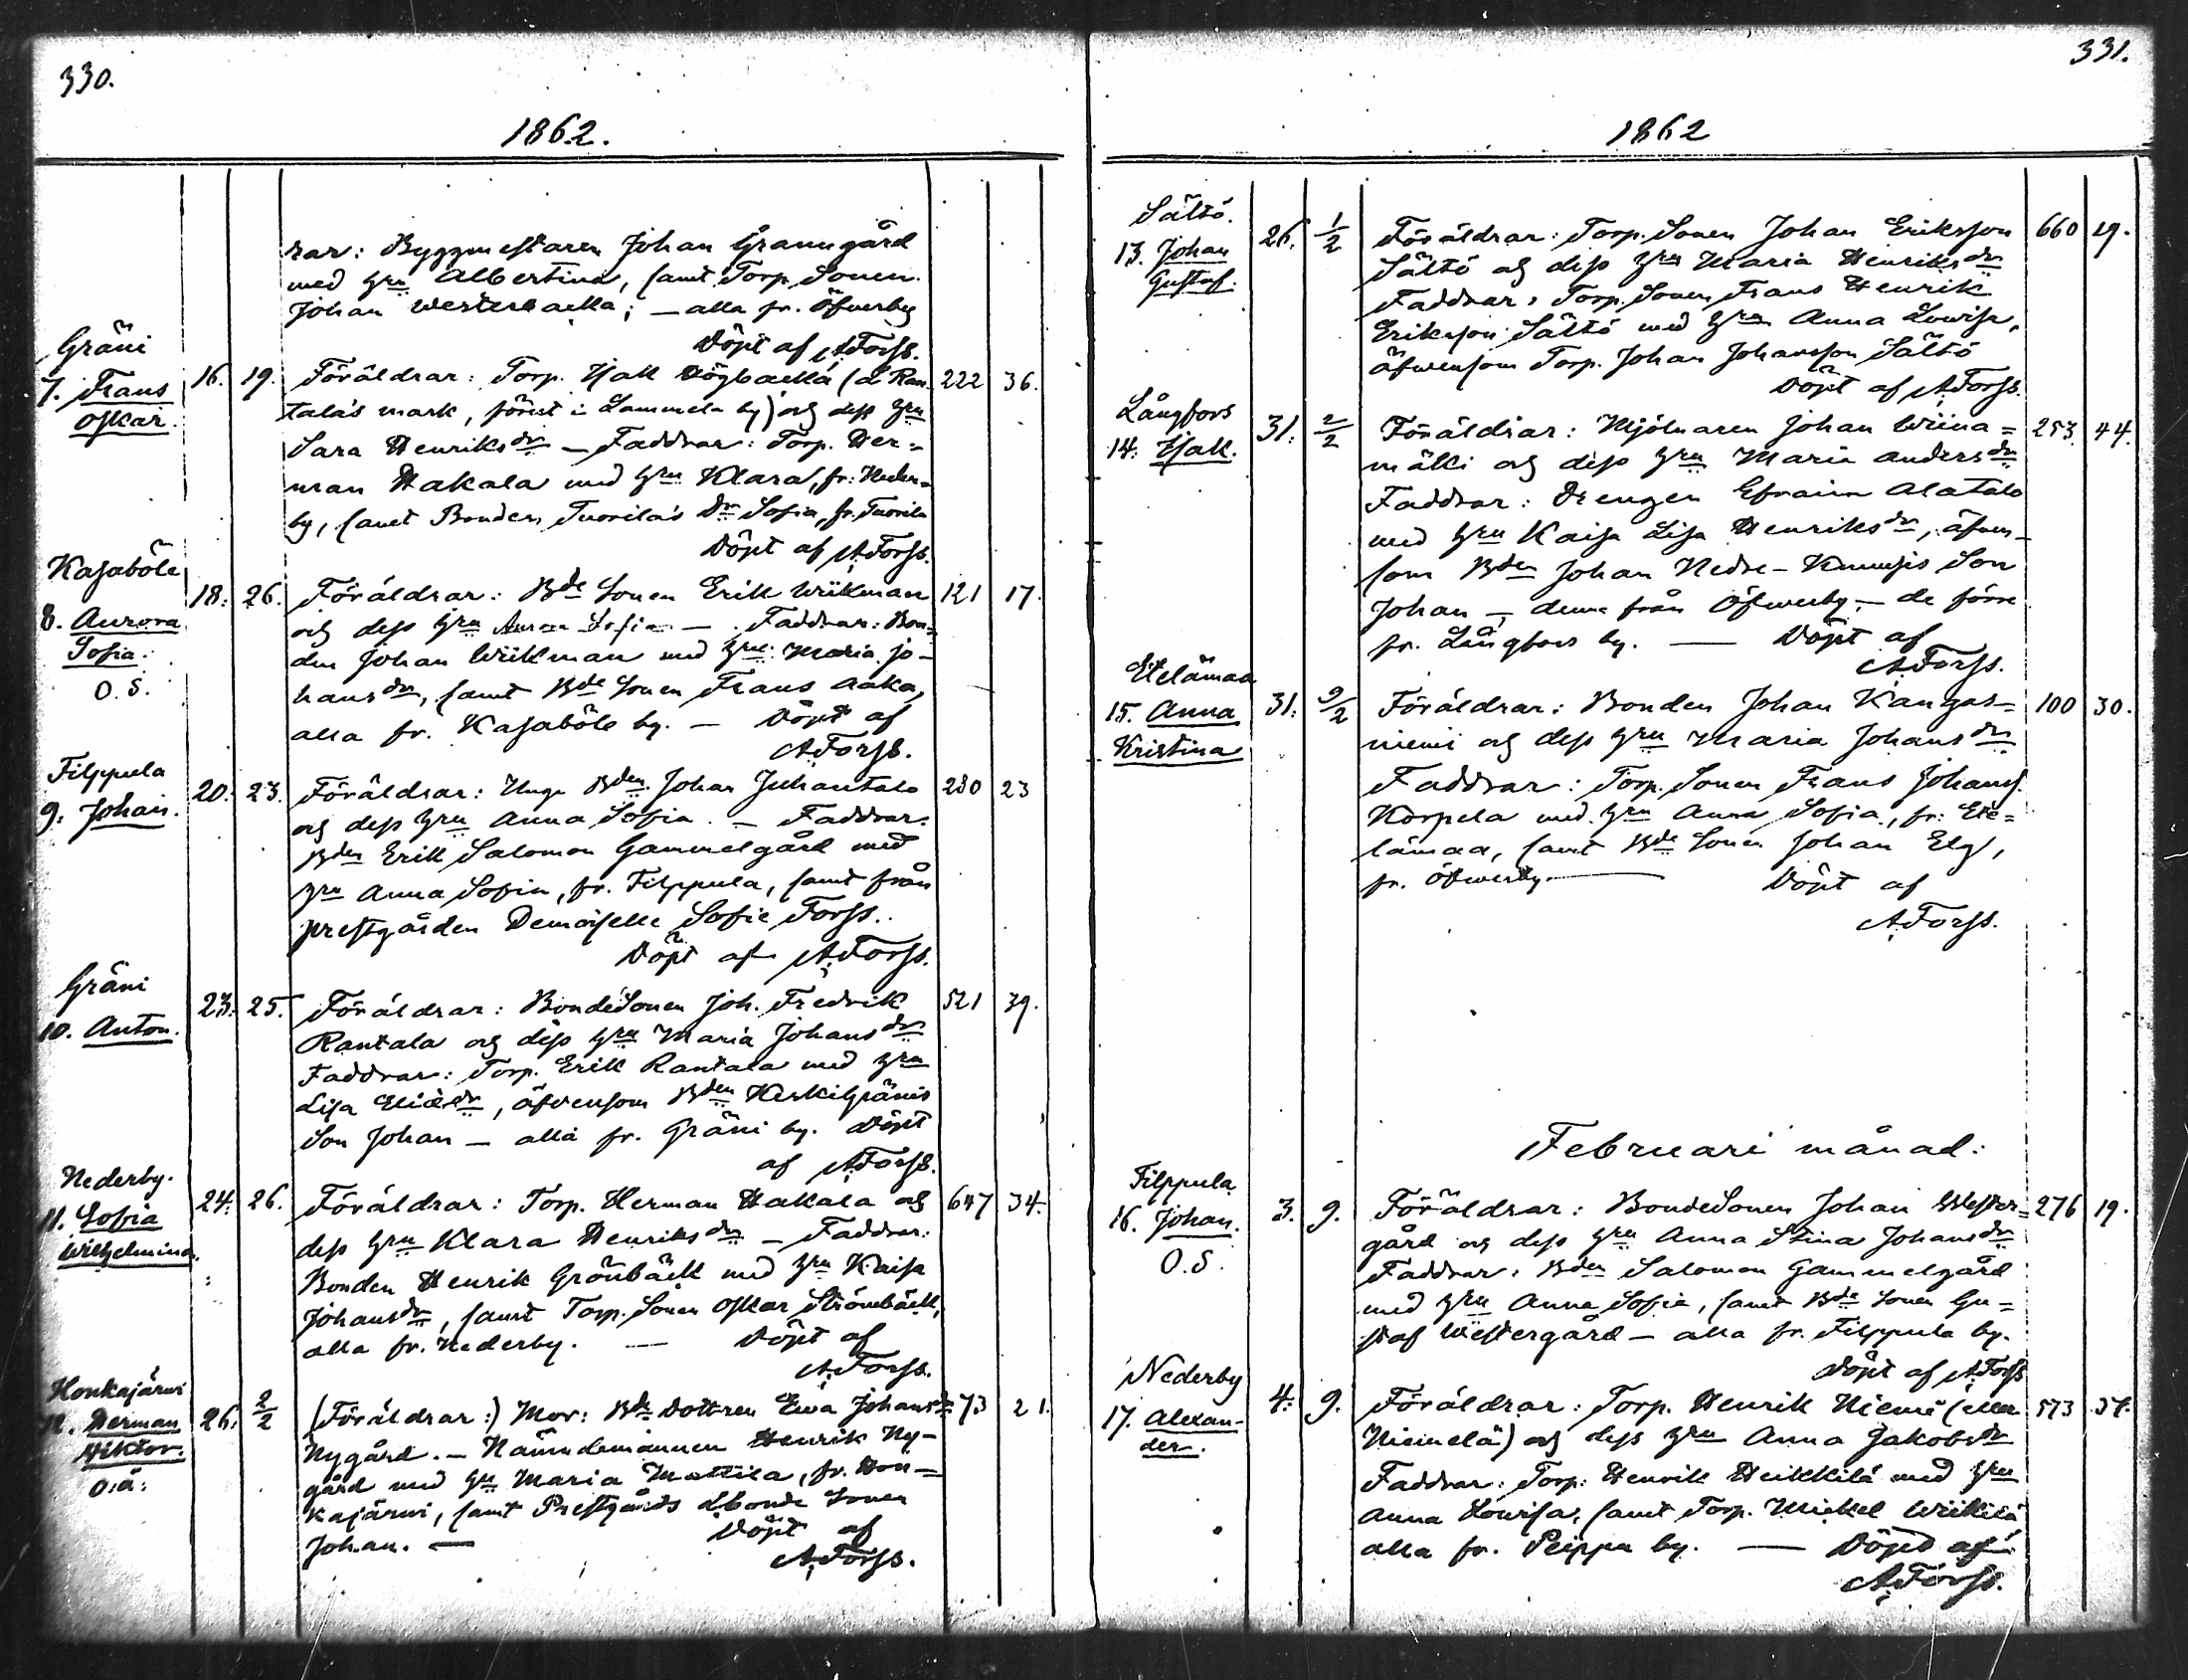 330.
1862.
rar: Byggmestaren Johan Granngård
med hru Albertina, samt Torp. Sonen
Johan Westerbacka; — alla fr. Öfverby
Döpt af A. Forss.
Gräni
7. Frans
Oskar.
16. 19. Föräldrar: Torp. Isak Högbacka (å Ran- 222 36.
tala's mark, förut i Lammela by) och dess hru
Sara Henriksdr — Faddrar: Torp. Her=
man Hakala med hru Klara, fr. Neder=
by, samt Bonden Tuorila's Dr Sofia, fr. Tuorila
Döpt af A. Forss.
Kasaböle
8. Aurora
Sofia.
O. S.
18. 26. Föräldrar: Bde Sonen Erik Wiikman 121 17.
och dess hru Anna Sofia — . Faddrar: Bon=
den Johan Wiikman med hru Maria Jo-
hansdr, samt Bde Sonen Frans Aaka,
alla fr. Kasaböle by. — Döpt af
A. Forss.
Filppula
9. Johan.
20. 23. Föräldrar: Unge Bden Johan Juhantalo 230 23
och dess hru Anna Sofia. — Faddrar:
Bden Erik Salomon Gammelgård med
hru Anna Sofia, fr. Filppula, samt från
prestgården Demoiselle Sofie Forss.
Döpt af A. Forss.
Gräni
10. Anton.
23. 25. Föräldrar: BondeSonen Joh. Fredrik 521 39.
Rantala och dess hru Maria Johansdr
Faddrar: Torp. Erik Rantala med hru
Lisa Eliædr, äfvensom Bden Keskigränis
Son Johan — alla fr. Gräni by. Döpt
af A. Forss.
Nederby.
11. Sofia
Wilhelmina.
24. 26. Föräldrar: Torp. Herman Hakala och 647 34.
dess hru Klara Henriksdr — Faddrar:
Bonden Henrik Grönbäck med hru Kaisa
Johansdr, samt Torp. Sonen Oskar Strömbäck,
alla fr. Nederby. — Döpt af
A. Forss.
Honkajärwi
12. Herman
Wiktor.
o.ä.
26. 2/2 (Föräldrar:) Mor: Bde Dottren Ewa Johansdr 73 21.
Nygård. — Nämndemannen Henrik Ny-
gård med hru Maria Mattila, fr. Hon=
kajärwi, samt Prestgårds Lbonde Sonen
Johan. — Döpt af
A. Forss.
331.
1862
Sältö.
13. Johan
Gustaf.
26. 1/2 Föräldrar: Torp. Sonen Johan Eriksson 660 19.
Sältö och dess hru Maria Henriksdr
Faddrar: Torp. Sonen Frans Henrik
Eriksson Sältö med hru Anna Lowisa,
äfwensom Torp. Johan Johansson Sältö
Döpt af A. Forss.
Långfors
14. Isak.
31. 2/2 Föräldrar: Mjölnaren Johan Wiina= 253. 44.
mäki och dess hru Maria Andersdr
Faddrar: Drengen Efraim Alatalo
med hru Kaisa Lisa Henriksdr, äfven-
som Bden Johan Nedre-Knuusis Son
Johan — denne från Öfwerby, — de förre
fr. Långfors by. — Döpt af
A. Forss.
Etelämaa
15. Anna
Kristina
31. 9/2 Föräldrar: Bonden Johan Kangas= 100 30.
niemi och dess hru Maria Johansdr
Faddrar: Torp. Sonen Frans Johanss.
Korpela med hru Anna Sofia, fr. Ete=
lämaa, samt Bde Sonen Johan Elg,
fr. Öfwerby. — Döpt af
A. Forss.
Februari månad:
Filppula
16. Johan.
O. S.
3. 9. Föräldrar: BondeSonen Johan Wester= 276 19.
gård och dess hru Anna Stina Johansdr
Faddrar: Bden Salomon Gammelgård
med hru Anna Sofia, samt Bde Sonen Gu=
staf Westergård — alla fr. Filppula by.
Döpt af A. Forss
Nederby
17. Alexan-
der.
4. 9. Föräldrar: Torp. Henrik Niemi (eller 573 37.
Niemelä) och dess hru Anna Jakobsdr
Faddrar: Torp: Henrik Heikkilä med hru
Anna Lowisa, samt Torp. Mickel Wiikilä
alla fr. Peippu by. — Döpt af
A. Forss.